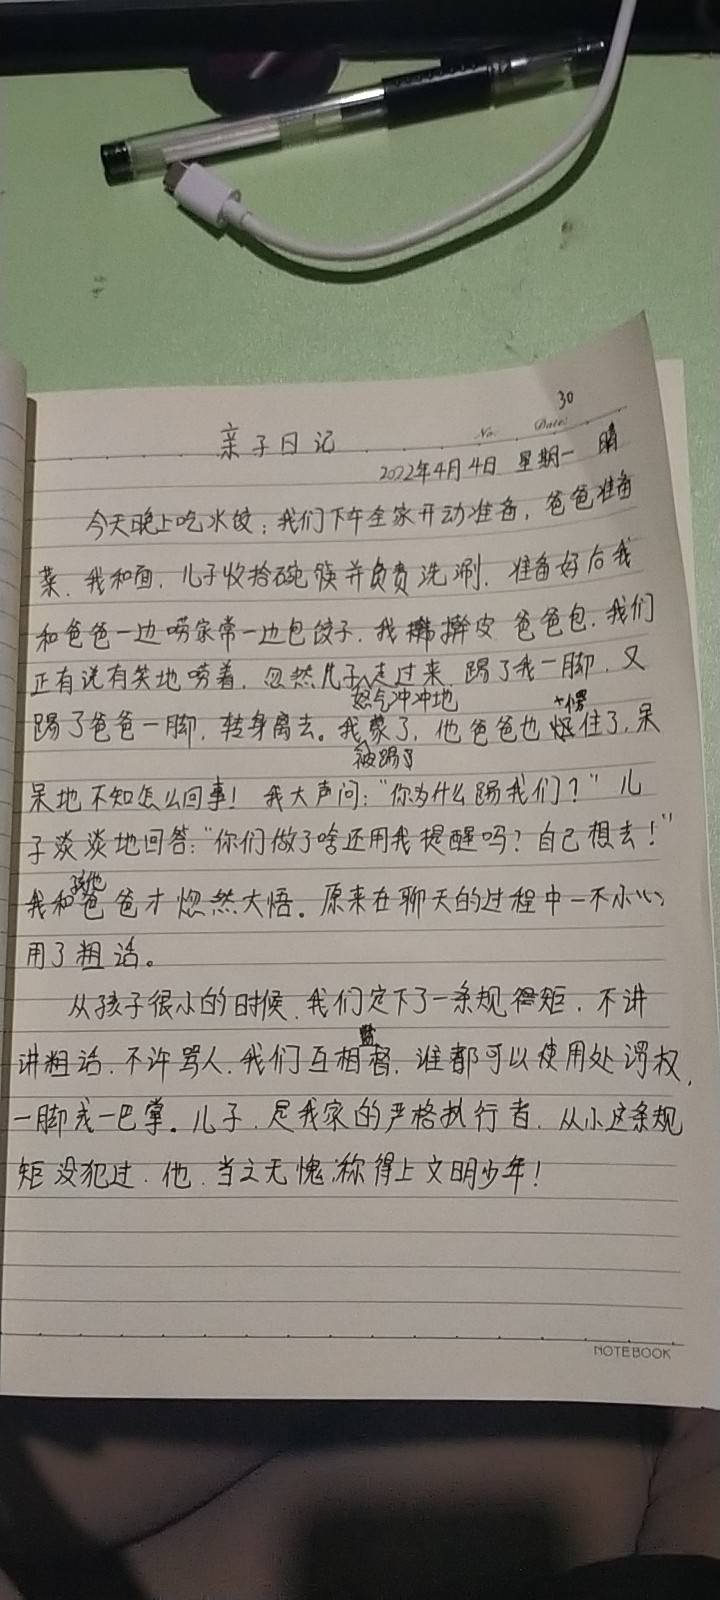 30
No. Date:
亲子日记
2022年4月4日 星期一 晴
今天晚上吃水饺；我们下午全家开动准备，爸爸准备
菜、我和面，儿子收拾碗筷并负责洗涮。准备好后我
和爸爸一边唠家常一边包饺子，我擀皮 爸爸包，我们
正有说有笑地唠着，忽然儿子走过来，踢了我一脚，又
怒气冲冲地
愣
踢了爸爸一脚，转身离去。我蒙了，他爸爸也住了，呆
被踢了
呆地不知怎么回事！我大声问：“你为什么踢我们？”儿
子淡淡地回答：“你们做了啥还用我提醒吗？自己想去！”
孩他
我和爸爸才惚然大悟。原来在聊天的过程中一不小心
用了粗话。
从孩子很小的时候，我们定下了一条规矩，不讲
讲粗话，不许骂人，我们互相督，谁都可以使用处谓权，
监
一脚或一巴掌。儿子，是我家的严格执行者，从小这条规
矩没犯过，他，当之无愧称得上文明少年！
NOTEBOOK